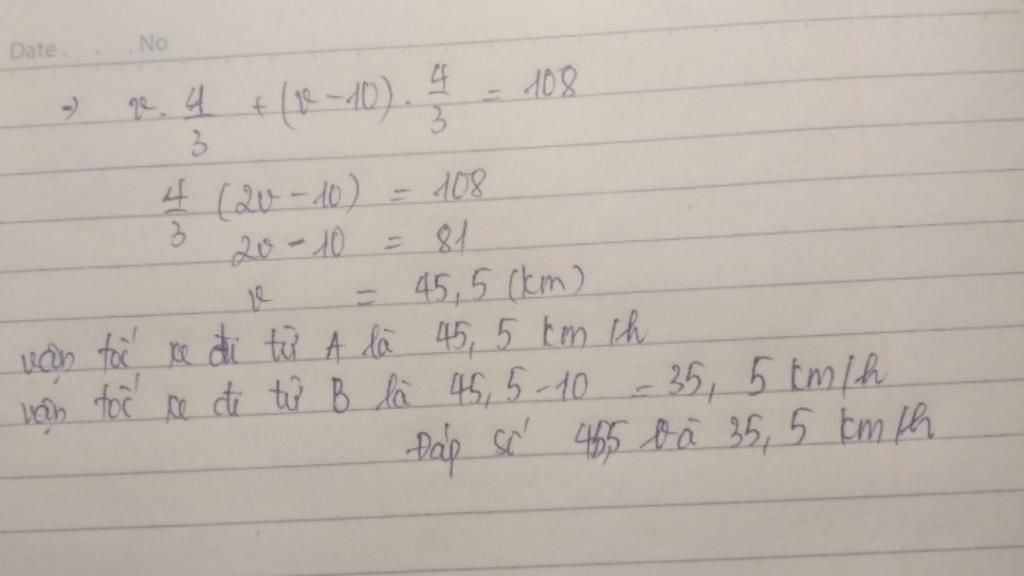 Date . . . No
=> v. 4/3 + (v-10). 4/3 = 108
4/3 (2v-10) = 108
2v-10 = 81
v = 45,5 (km)
vận tốc xe đi từ A là 45,5 km/h
vận tốc xe đi từ B là 45,5-10 = 35,5 km/h
Đáp số 45,5 và 35,5 km/h